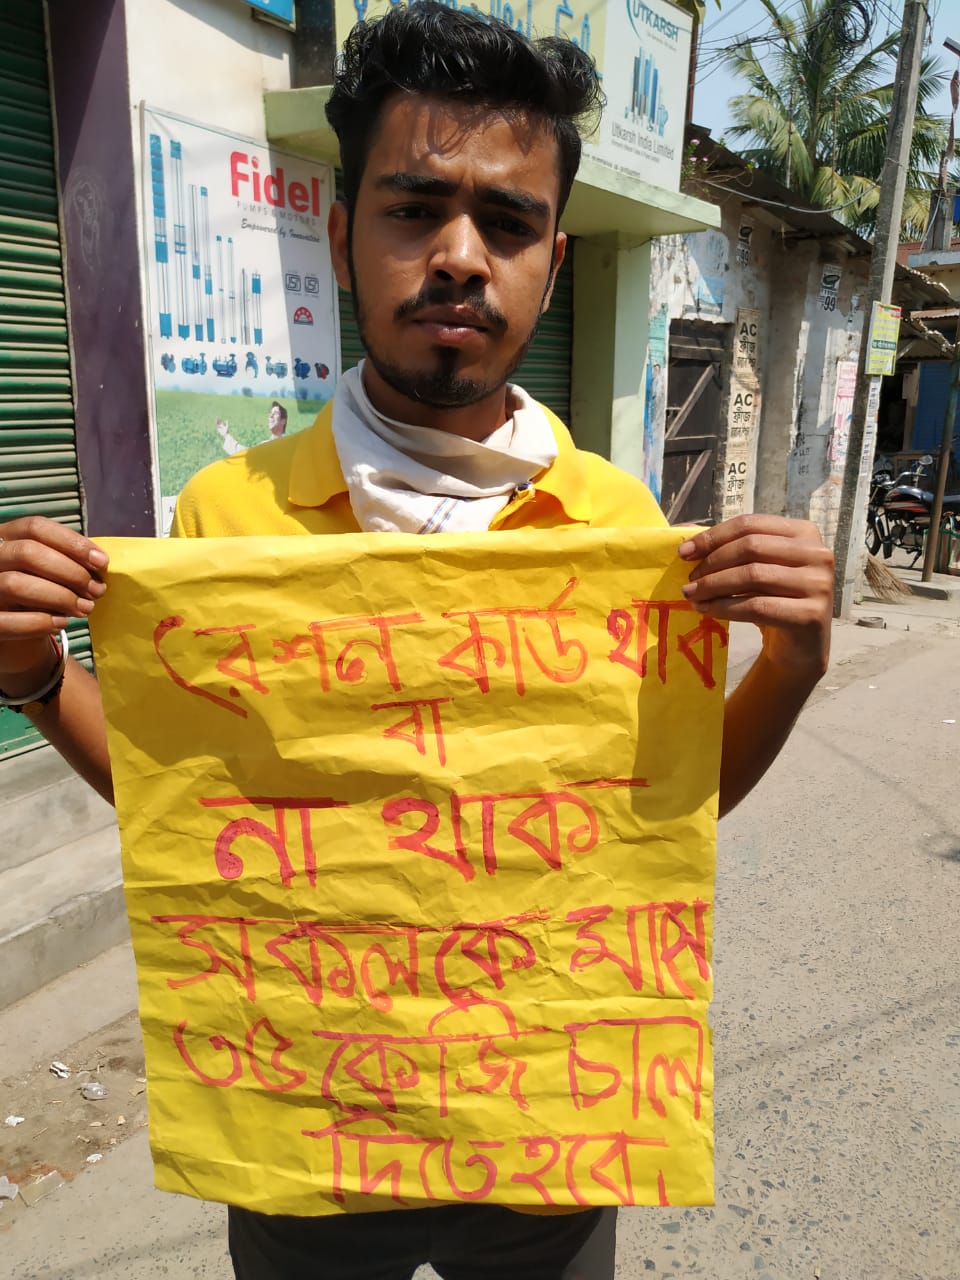 UTKARSH
Utkarsh India Limited
Fidel
PUMPS & MOTORS
Empowered by Innovation
99
99
AC
ফ্রীজ
AC
ফ্রীজ
AC
ফ্রীজ
রেশন কার্ড থাক
বা
না থাক
সকলকে মাসে
৩৫ কেজি চাল
দিতে হবে।